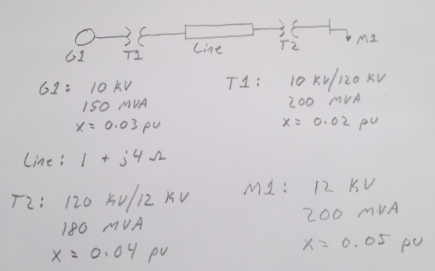 G1 T1 Line T2 M1
G1: 10 KV
150 MVA
X = 0.03 pu
T1: 10 KV/120 KV
200 MVA
X = 0.02 pu
Line: 1 + j4 Ω
T2: 120 KV/12 KV
180 MVA
X = 0.04 pu
M1: 12 KV
200 MVA
X = 0.05 pu